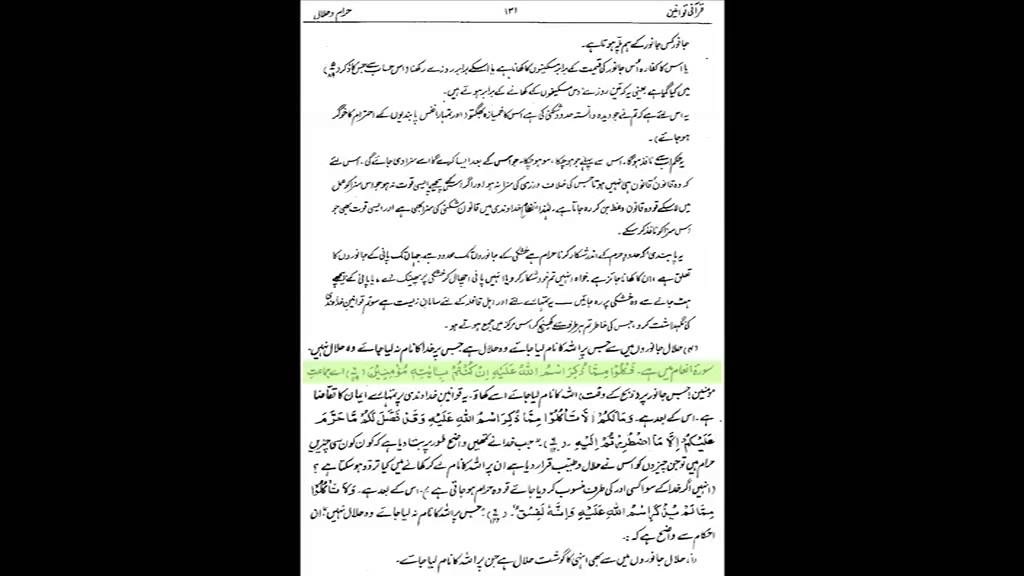 قرآنی قوانین ۱۳۱ حرام و حلال
جانور کس جانور کے ہم پلّہ ہوتا ہے۔
یا اس کا کفارہ اُس جانور کی قیمت کے برابر مسکینوں کا کھانا ہے یا اسکے برابر روزے رکھنا (اس حساب سے جس کا ذکر
میں کیا گیا ہے یعنی یہ کہ تین روزے دس مسکینوں کے کھانے کے برابر ہوتے ہیں۔
یہ اس لئے ہے کہ تم نے جو دیدہ دانستہ حدود شکنی کی ہے اس کا خمیازہ بھگتو اور تمہارا نفس پابندیوں کے احترام کا خوگر
ہو جائے)۔
یہ حکم اب سے نافذ ہوگا۔ اس سے پہلے جو ہو چکا، سو ہو چکا۔ جو اس کے بعد ایسا کریگا اسے سزا دی جائے گی۔ اس لئے
کہ وہ قانون قانون ہی نہیں ہوتا جس کی خلاف ورزی کی سزا نہ ہو اور اگر اسکے پیچھے ایسی قوت نہ ہو جو اس سزا کو عمل
میں لا سکے تو وہ قانون وعظ بن کر رہ جاتا ہے۔ لہٰذا نظامِ خداوندی میں قانون شکنی کی سزا بھی ہے اور ایسی قوت بھی جو
اس سزا کو نافذ کر سکے۔
یہ پابندی کہ حدودِ حرم کے اندر شکار کرنا حرام ہے خشکی کے جانوروں تک محدود ہے۔ جہاں تک پانی کے جانوروں کا
تعلق ہے، ان کا کھانا جائز ہے خواہ انہیں تم خود شکار کرو یا انہیں پانی اچھال کر خشکی پر پھینک دے، یا پانی کے پیچھے
ہٹ جانے سے وہ خشکی پر رہ جائیں — یہ تمہارے لئے اور اہل قافلہ کے لئے سامانِ زیست ہے سو تم قوانینِ خداوندی
کی نگہداشت کرو، جس کی خاطر تم ہر طرف سے کھنچ کر اس مرکز میں جمع ہوتے ہو۔
حلال جانوروں میں سے جس پر اللہ کا نام لیا جائے وہ حلال ہے جس پر خدا کا نام نہ لیا جائے وہ حلال نہیں۔
سورۂ انعام میں ہے۔ فَكُلُوْا مِمَّا ذُكِرَ اسْمُ اللّٰهِ عَلَيْهِ اِنْ كُنْتُمْ بِاٰيٰتِهٖ مُؤْمِنِيْنَ اے جماعتِ
مومنین! جس جانور پر (ذبح کے وقت) اللہ کا نام لیا جائے اسے کھاؤ۔ یہ قوانینِ خداوندی پر تمہارے ایمان کا تقاضا
ہے۔ اس کے بعد ہے۔ وَمَا لَكُمْ اَلَّا تَاْكُلُوْا مِمَّا ذُكِرَ اسْمُ اللّٰهِ عَلَيْهِ وَقَدْ فَصَّلَ لَكُمْ مَّا حَرَّمَ
عَلَيْكُمْ اِلَّا مَا اضْطُرِرْتُمْ اِلَيْهِ جب خدا نے تمھیں واضح طور پر بتا دیا ہے کہ کون کون سی چیزیں
حرام ہیں تو جن چیزوں کو اس نے حلال و طیب قرار دیا ہے ان پر اللہ کا نام لے کر کھانے میں کیا تردّد ہو سکتا ہے؟
(انہیں اگر خدا کے سوا کسی اور کی طرف منسوب کر دیا جائے تو وہ حرام ہو جاتی ہے)۔ اس کے بعد ہے۔ وَلَا تَاْكُلُوْا
مِمَّا لَمْ يُذْكَرِ اسْمُ اللّٰهِ عَلَيْهِ وَاِنَّهٗ لَفِسْقٌ۔ جس پر اللہ کا نام نہ لیا جائے وہ حلال نہیں" ان
احکام سے واضح ہے کہ :۔
(۱) حلال جانوروں میں سے بھی انہی کا گوشت حلال ہے جن پر اللہ کا نام لیا جائے۔